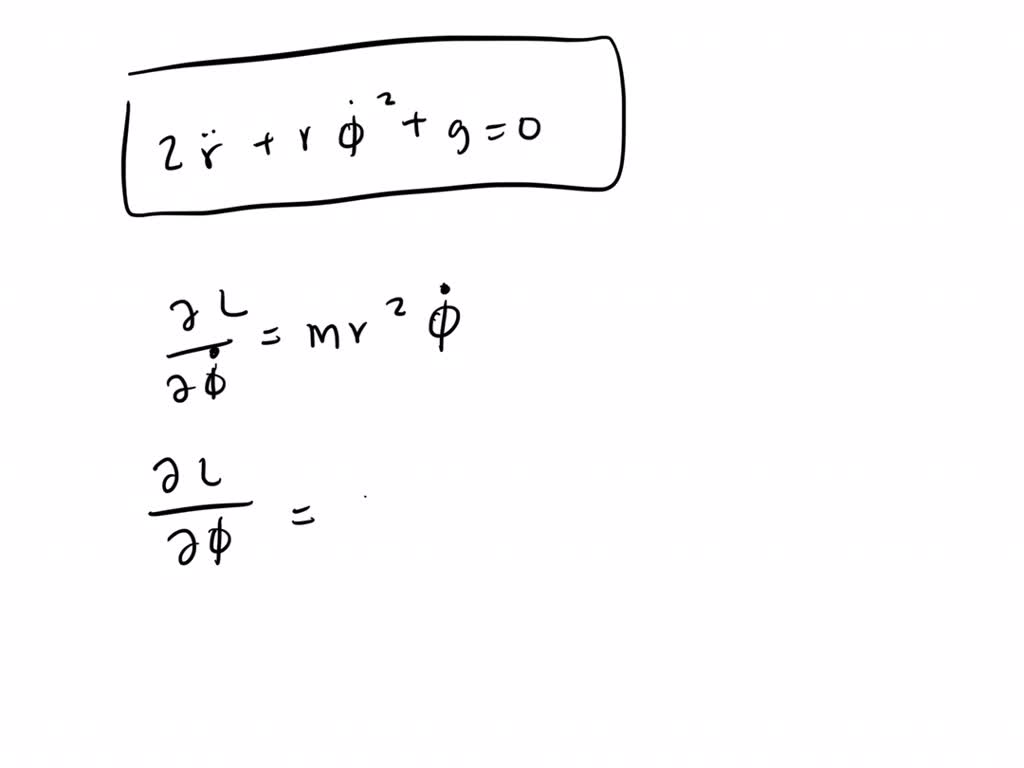 2r̈ + rϕ̇² + g = 0
∂L/∂ϕ̇ = mr²ϕ̇
∂L/∂ϕ =